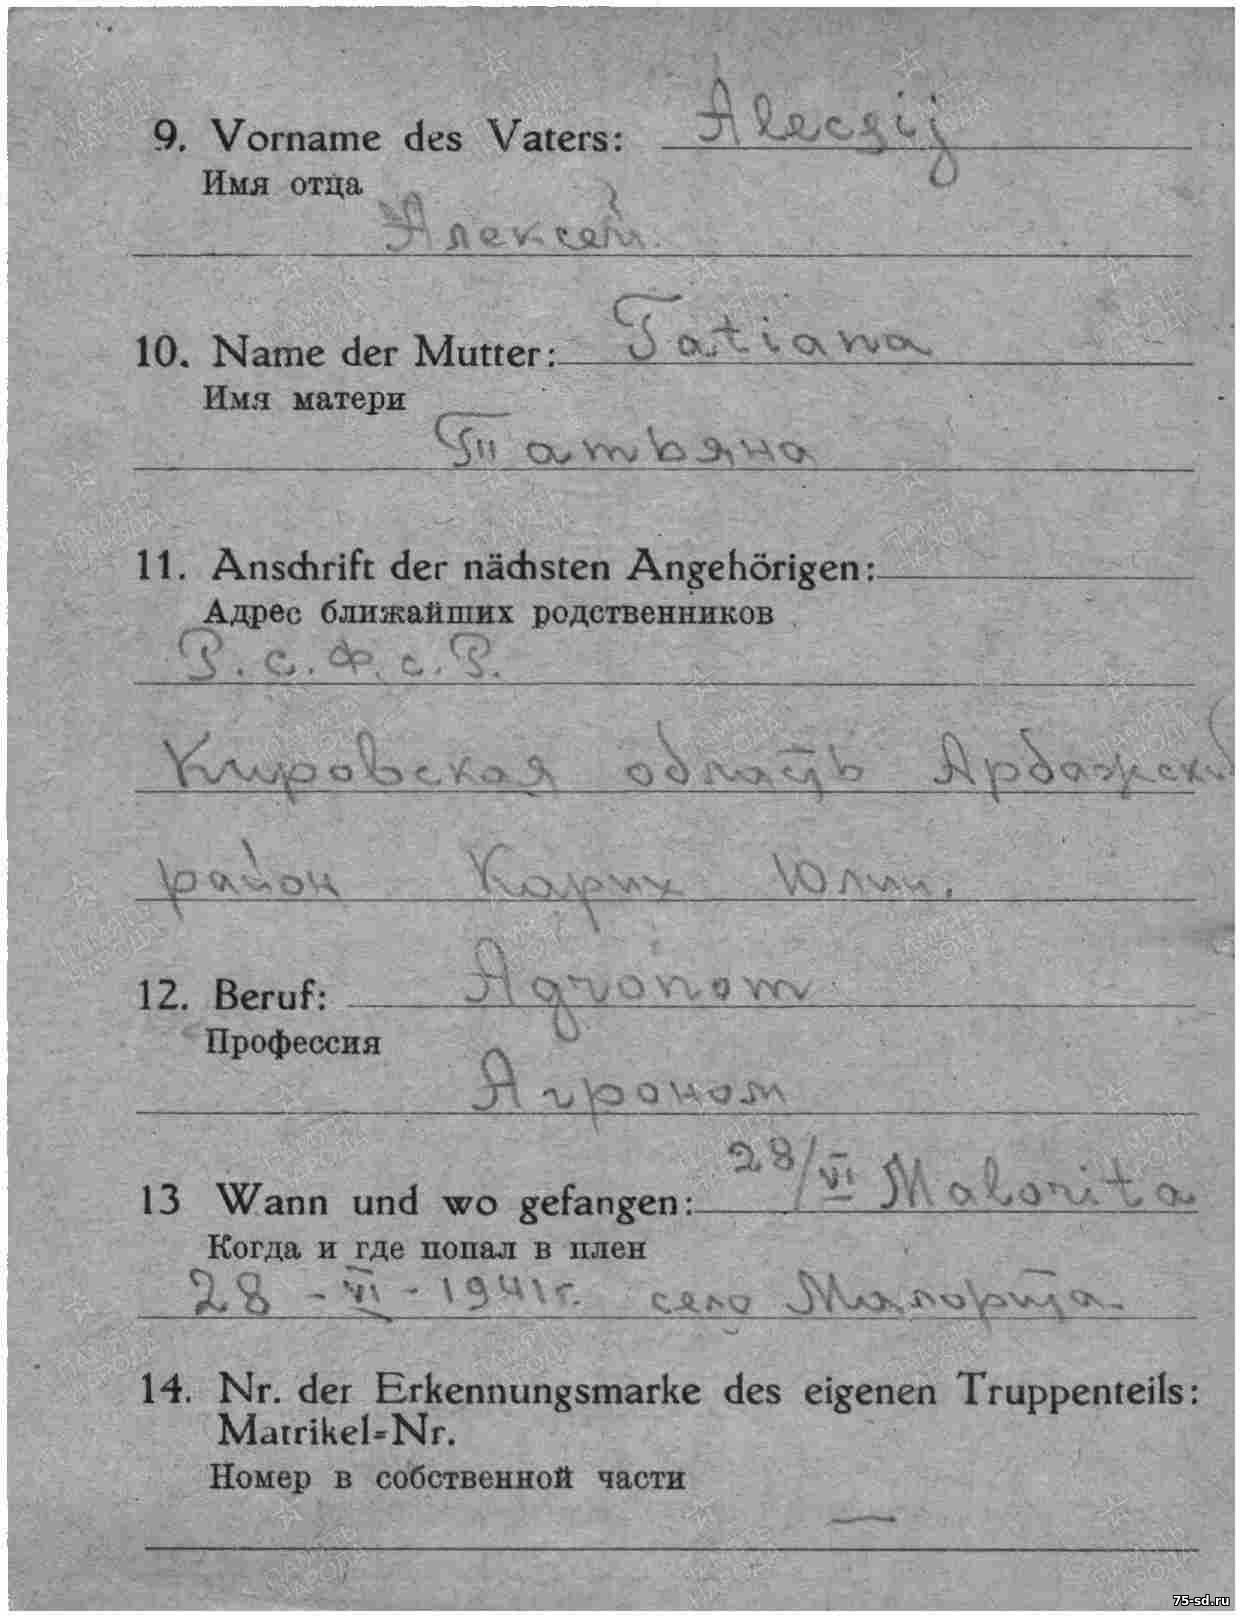 9. Vorname des Vaters: Alecsij
Имя отца
Алексей.
10. Name der Mutter: Tatiana
Имя матери
Татьяна
11. Anschrift der nächsten Angehörigen:
Адрес ближайших родственников
Р. с. Ф. с. Р.
Кировская область Арбажский
район Карих Юлии.
12. Beruf: Agronom
Профессия
Агроном
13 Wann und wo gefangen: 28/VI Malorita
Когда и где попал в плен
28 - VI - 1941 г. село Малорита.
14. Nr. der Erkennungsmarke des eigenen Truppenteils:
Matrikel=Nr.
Номер в собственной части
—
75-sd.ru
ПАМЯТЬ НАРОДА